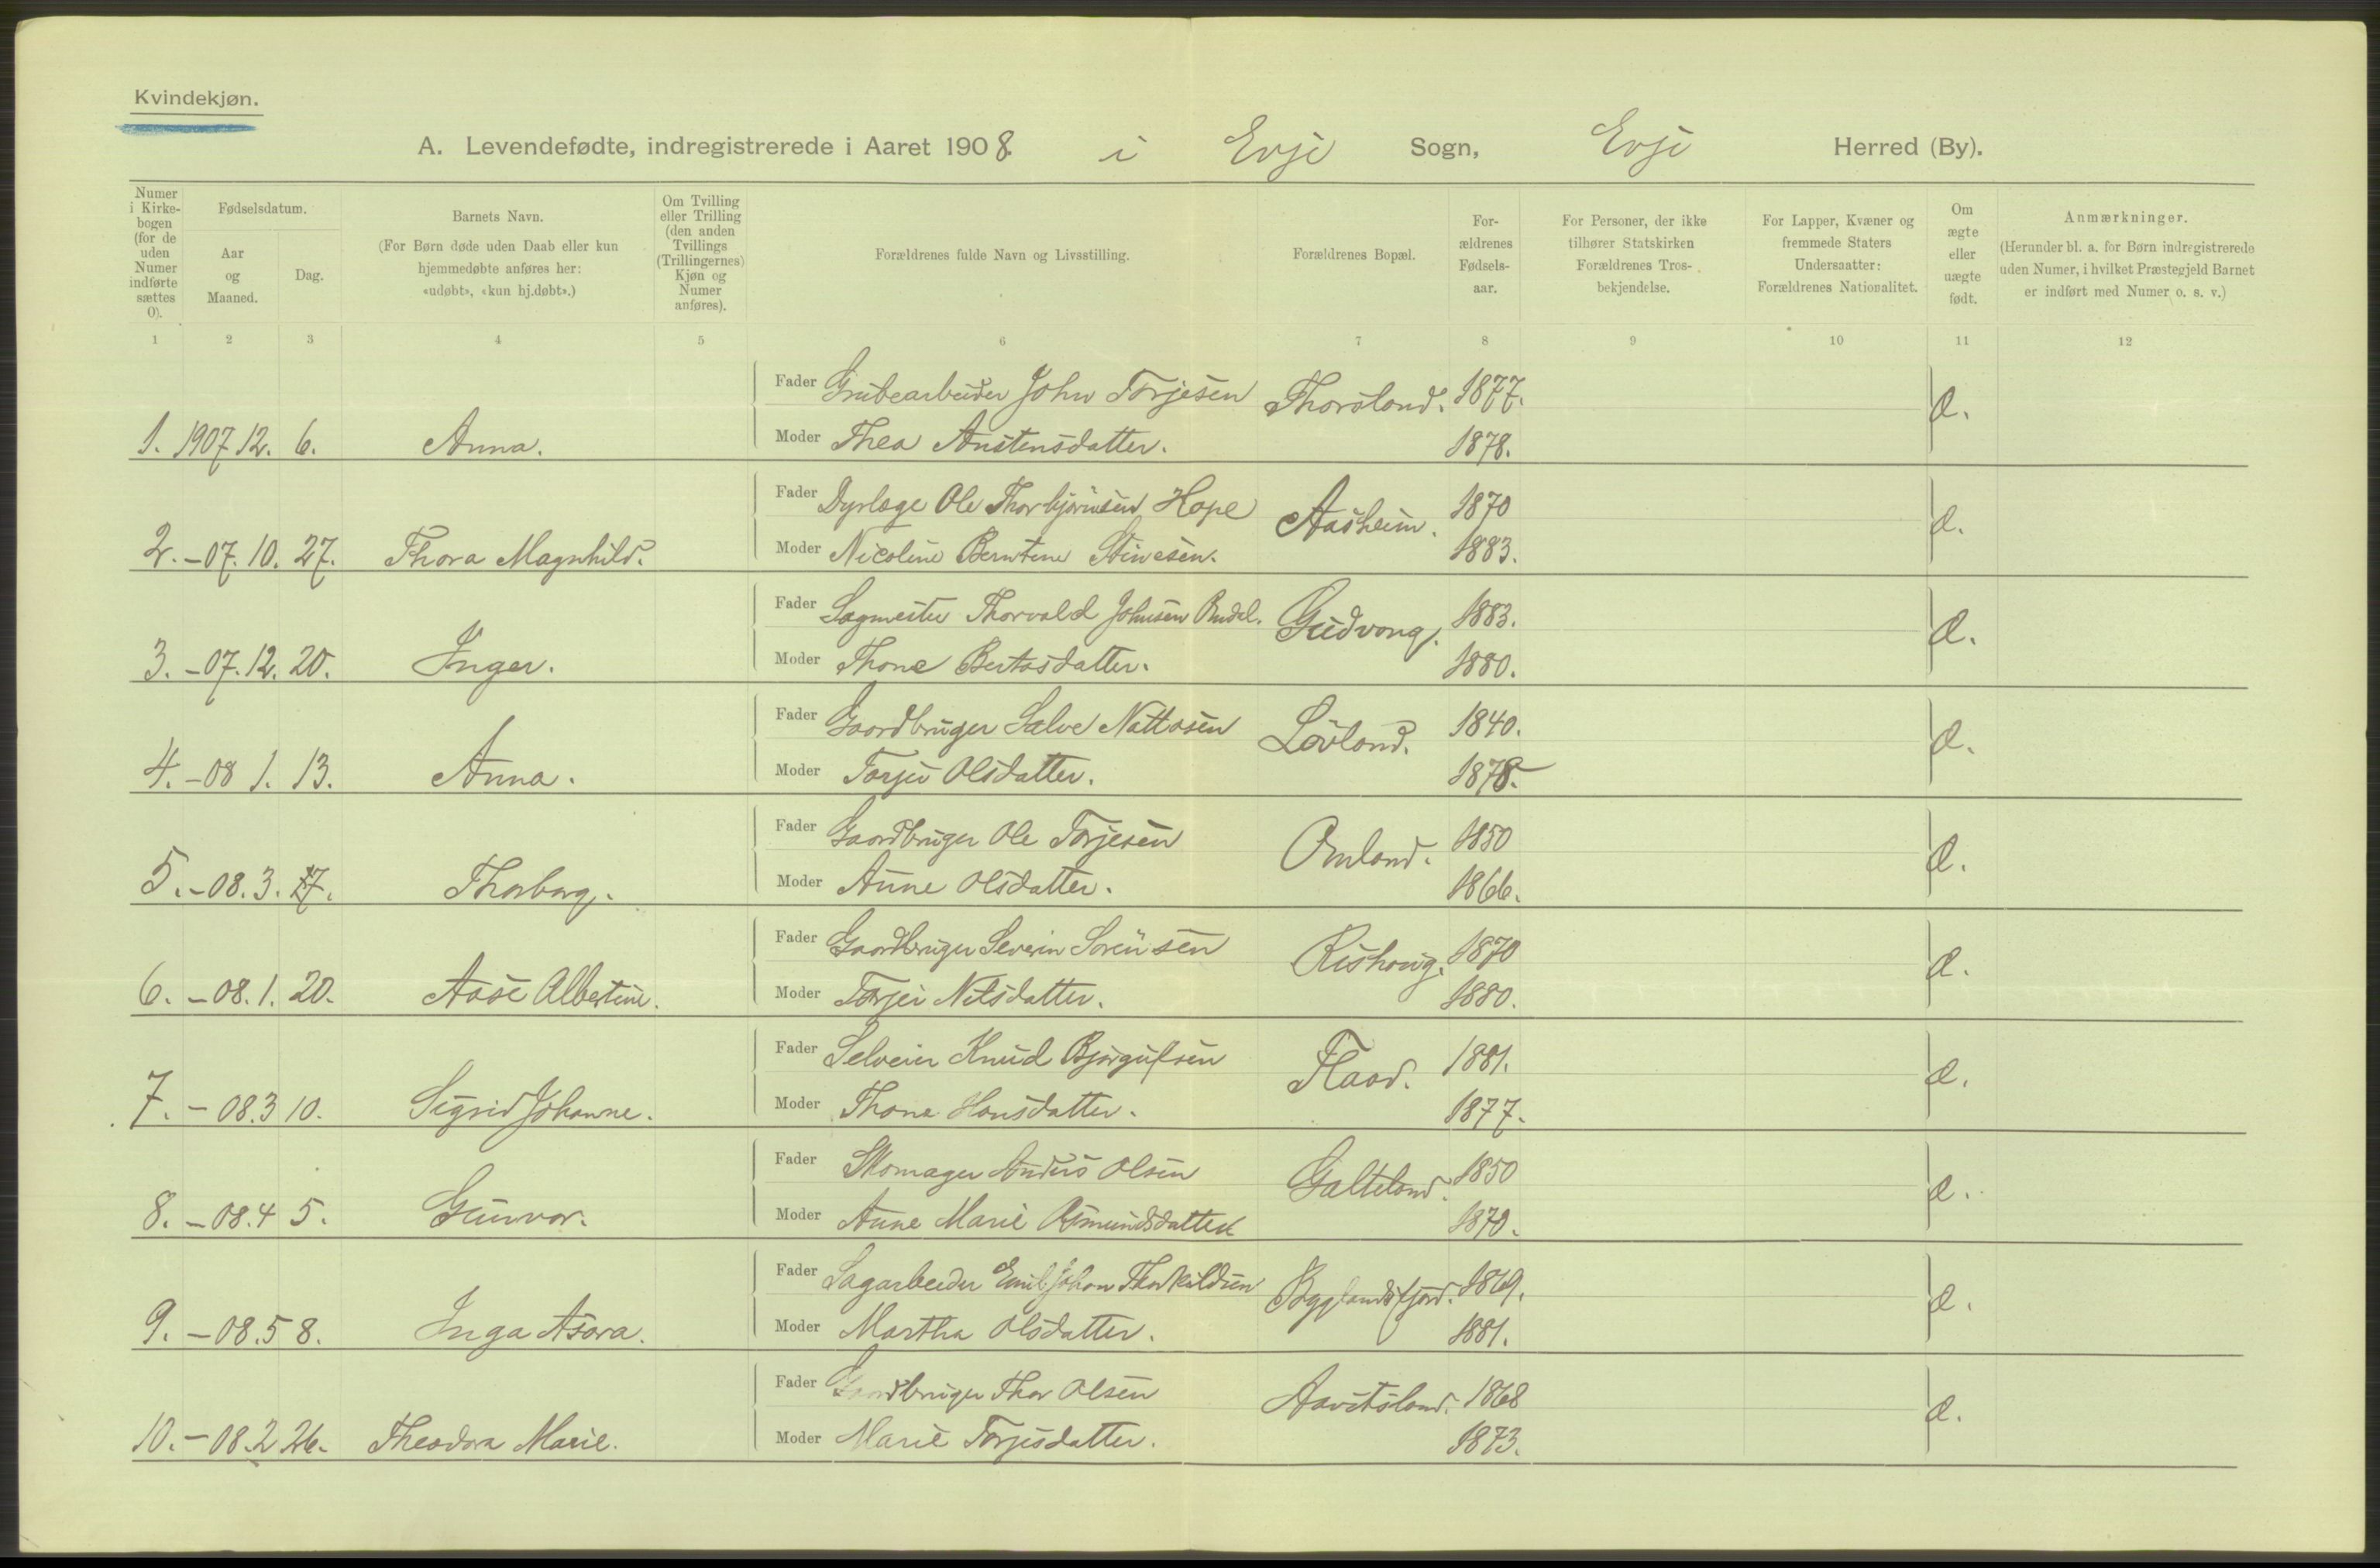 Kvindekjøn.
A. Levendefødte, indregistrerede i Aaret 1908. i Evje Sogn, Evje Herred (By).
Numer i Kirkebogen (for de uden Numer indførte sættes 0).
Fødselsdatum.
Aar og Maaned.
Dag.
Barnets Navn.
(For Børn døde uden Daab eller kun hjemmedøbte anføres her: «udøbt», «kun hj.døbt».)
Om Tvilling eller Trilling (den anden Tvillings (Trillingernes) Kjøn og Numer anføres).
Forældrenes fulde Navn og Livsstilling.
Forældrenes Bopæl.
Forældrenes Fødselsaar.
For Personer, der ikke tilhører Statskirken Forældrenes Trosbekjendelse.
For Lapper, Kvæner og fremmede Staters Undersaatter: Forældrenes Nationalitet.
Om ægte eller uægte født.
Anmærkninger.
(Herunder bl. a. for Børn indregistrerede uden Numer, i hvilket Præstegjeld Barnet er indført med Numer o. s. v.)
1 2 3 4 5 6 7 8 9 10 11 12
Fader Grubearbeider John Torjesen Thorsland. 1877. æ.
1. 1907 12. 6. Anna. Moder Thea Austensdatter. 1878.
Fader Dyrlæge Ole Thorbjørnsen Hope Aasheim. 1870 æ.
2. -07. 10. 27. Thora Magnhild. Moder Nicoline Berntine 1883.
Fader Sagmester Thorvald Johnsen Gudvang. 1883. æ.
3. -07. 12. 20. Inger. Moder Thone 1880.
Fader Gaardbruger Salve Lövland. 1840. æ.
4. -08 1. 13. Anna. Moder Torjer Olsdatter. 1878.
Fader Gaardbruger Ole Torjesen Omland. 1850 æ.
5. -08. 3. 17. Thorborg. Moder Anne Olsdatter. 1866.
Fader Gaardbruger Severin Sørensen Rishaug. 1870 æ.
6. -08. 1. 20. Aase Albertine. Moder Torjer Nilsdatter. 1880.
Fader Selveier Knud Bjorgufsen Flaad. 1881. æ.
7. -08. 3 10. Sigrid Johanne. Moder Thone Hansdatter. 1877.
Fader Skomager Anders Olsen Galteland. 1850 æ.
8. -08. 4 5. Gunvor. Moder Anne Marie Asmundsdatter 1870.
Fader Sagarbeider Emil Johan Thorkildsen Byglandsfjord. 1869. æ.
9. -08. 5 8. Inga Asora. Moder Martha Olsdatter. 1881.
Fader Gaardbruger Thor Olsen Aavitsland. 1868 æ.
10. -08. 2 26. Theodora Marie. Moder Marie Torjesdatter. 1873.